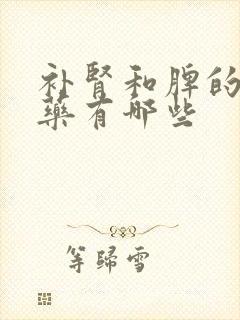 补肾和脾的
药有哪些
等归雪